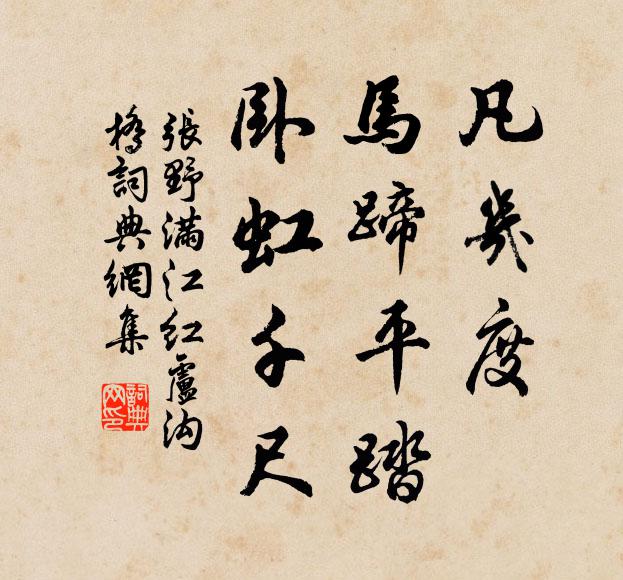 凡幾度
馬蹄平踏
臥虹千尺
張野滿江紅盧沟
橋詞典網集
詞典
网印